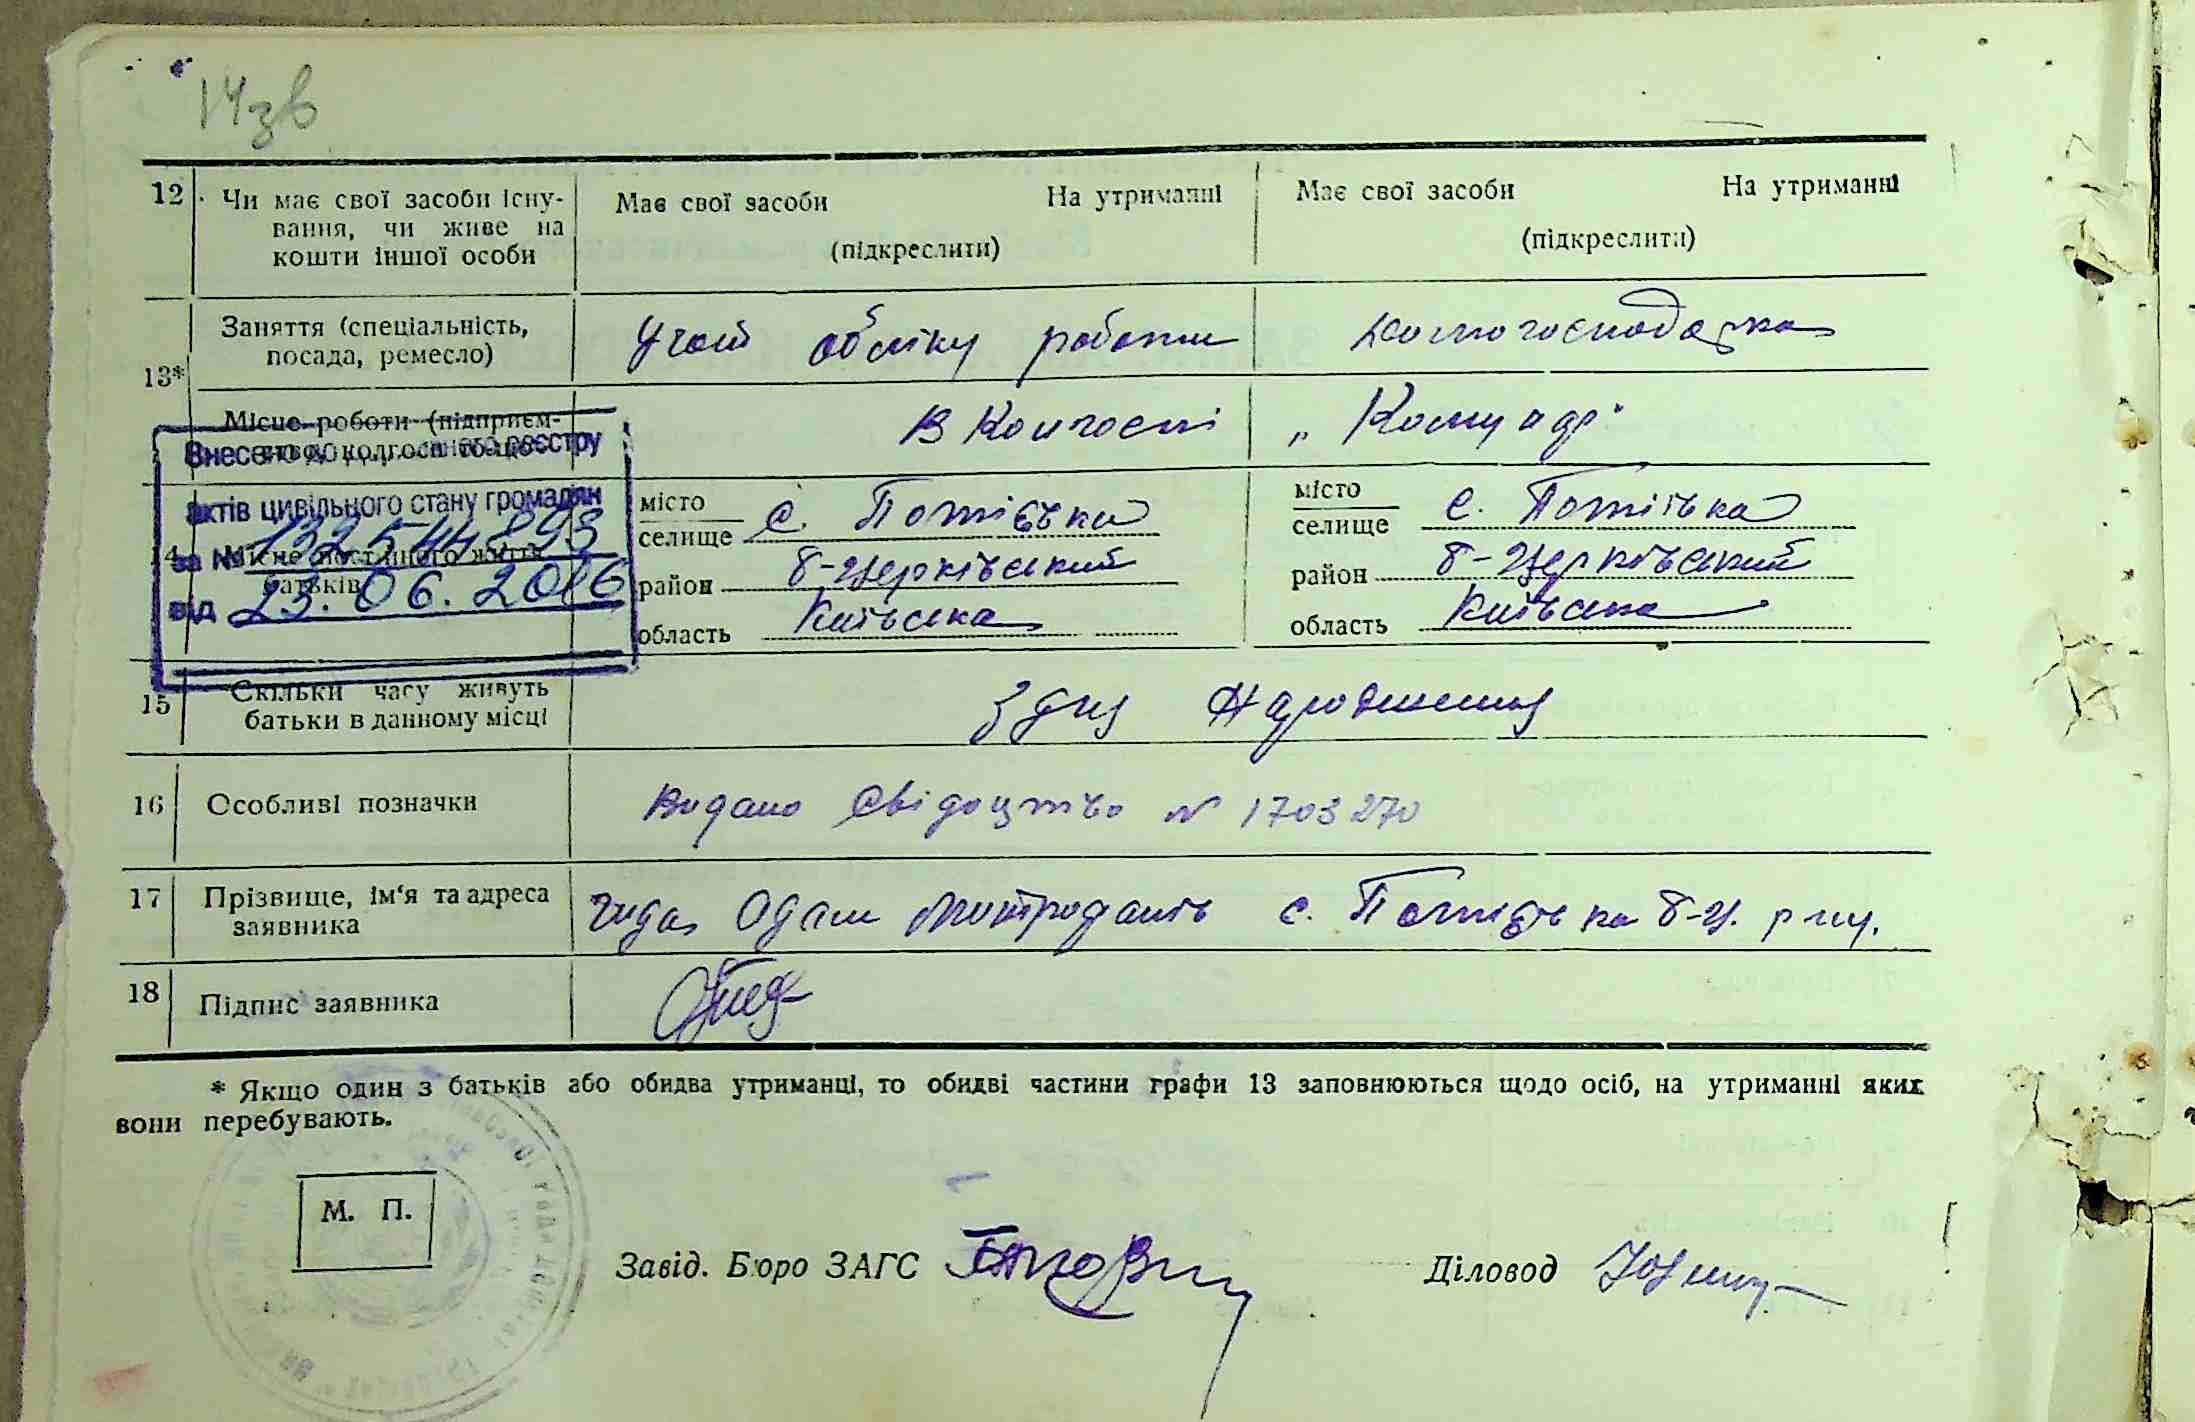 14зв
12 Чи має свої засоби існу- Має свої засоби На утриманні Має свої засоби На утриманні
вання, чи живе на (підкреслити) (підкреслити)
кошти іншої особи
13* Заняття (спеціальність, обліку работи домогосподарка
посада, ремесло)
Місце роботи (підприєм- В Колгоспі „Комунар"
Внесено до реєстру
актів цивільного стану громадян
за №
від 23.06.2016
14 Місце постійного життя
батьків
місто
селище с. Потіївка
район Б-Церківський
область Київська
місто
селище с. Потіївка
район Б-Церківський
область Київська
15 Скільки часу живуть З дня Народження
батьки в данному місці
16 Особливі позначки Видано Свідоцтво N 1703270
17 Прізвище, ім'я та адреса Одам с. Потіївка Б-Ц. р-ну.
заявника
18 Підпис заявника
* Якщо один з батьків або обидва утриманці, то обидві частини графи 13 заповнюються щодо осіб, на утриманні яких
вони перебувають.
М. П.
Завід. Бюро ЗАГС Діловод